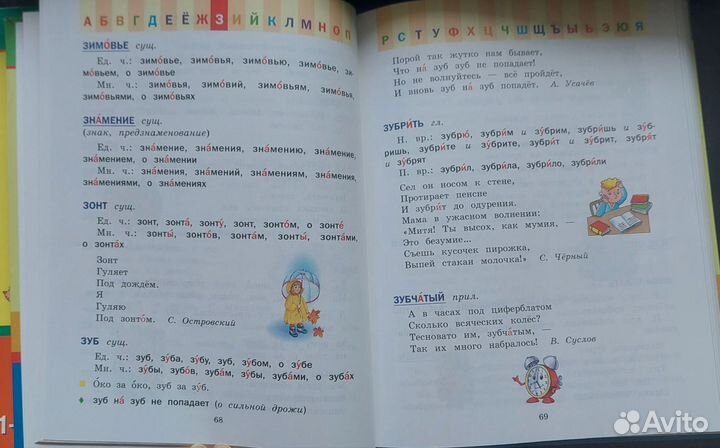 А Б В Г Д Е Ё Ж З И Й К Л М Н О П
ЗИМО́ВЬЕ сущ.
Ед. ч.: зимо́вье, зимо́вья, зимо́вью, зимо́вье, зи-
мо́вьем, о зимо́вье
Мн. ч.: зимо́вья, зимо́вий, зимо́вьям, зимо́вья,
зимо́вьями, о зимо́вьях
ЗНА́МЕНИЕ сущ.
(знак, предзнаменование)
Ед. ч.: зна́мение, зна́мения, зна́мению, зна́мение,
зна́мением, о зна́мении
Мн. ч.: зна́мения, зна́мений, зна́мениям, зна́мения,
зна́мениями, о зна́мениях
ЗОНТ сущ.
Ед. ч.: зонт, зонта́, зонту́, зонт, зонто́м, о зонте́
Мн. ч.: зонты́, зонто́в, зонта́м, зонты́, зонта́ми,
о зонта́х
Зонт
Гуляет
Под дождём.
Я
Гуляю
Под зонто́м. С. Островский
ЗУБ сущ.
Ед. ч.: зуб, зу́ба, зу́бу, зуб, зу́бом, о зу́бе
Мн. ч.: зу́бы, зубо́в, зуба́м, зу́бы, зуба́ми, о зуба́х
О́ко за о́ко, зуб за зу́б.
зуб на́ зуб не попадает (о сильной дрожи)
68
Р С Т У Ф Х Ц Ч Ш Щ Ъ Ы Ь Э Ю Я
Порой так жутко нам бывает,
Что на́ зуб зуб не попадает!
Но не волнуйтесь — всё пройдёт,
И вновь зуб на́ зуб попадёт. А. Усачёв
ЗУБРИ́ТЬ гл.
Н. вр.: зубрю́, зубри́м и зу́брим, зубри́шь и зу́б-
ришь, зубри́те и зу́брите, зубри́т и зу́брит, зубря́т
и зу́брят
П. вр.: зубри́л, зубри́ла, зубри́ло, зубри́ли
Сел он носом к стене,
Протирает пенсне
И зубри́т до одурения.
Мама в ужасном волнении:
«Митя! Ты высох, как мумия, —
Это безумие...
Съешь кусочек пирожка,
Выпей стакан молочка!» С. Чёрный
ЗУБЧА́ТЫЙ прил.
А в часах под циферблатом
Сколько всяческих колёс?
Тесновато им, зубча́тым, —
Так их много набралось! В. Суслов
69
Avito